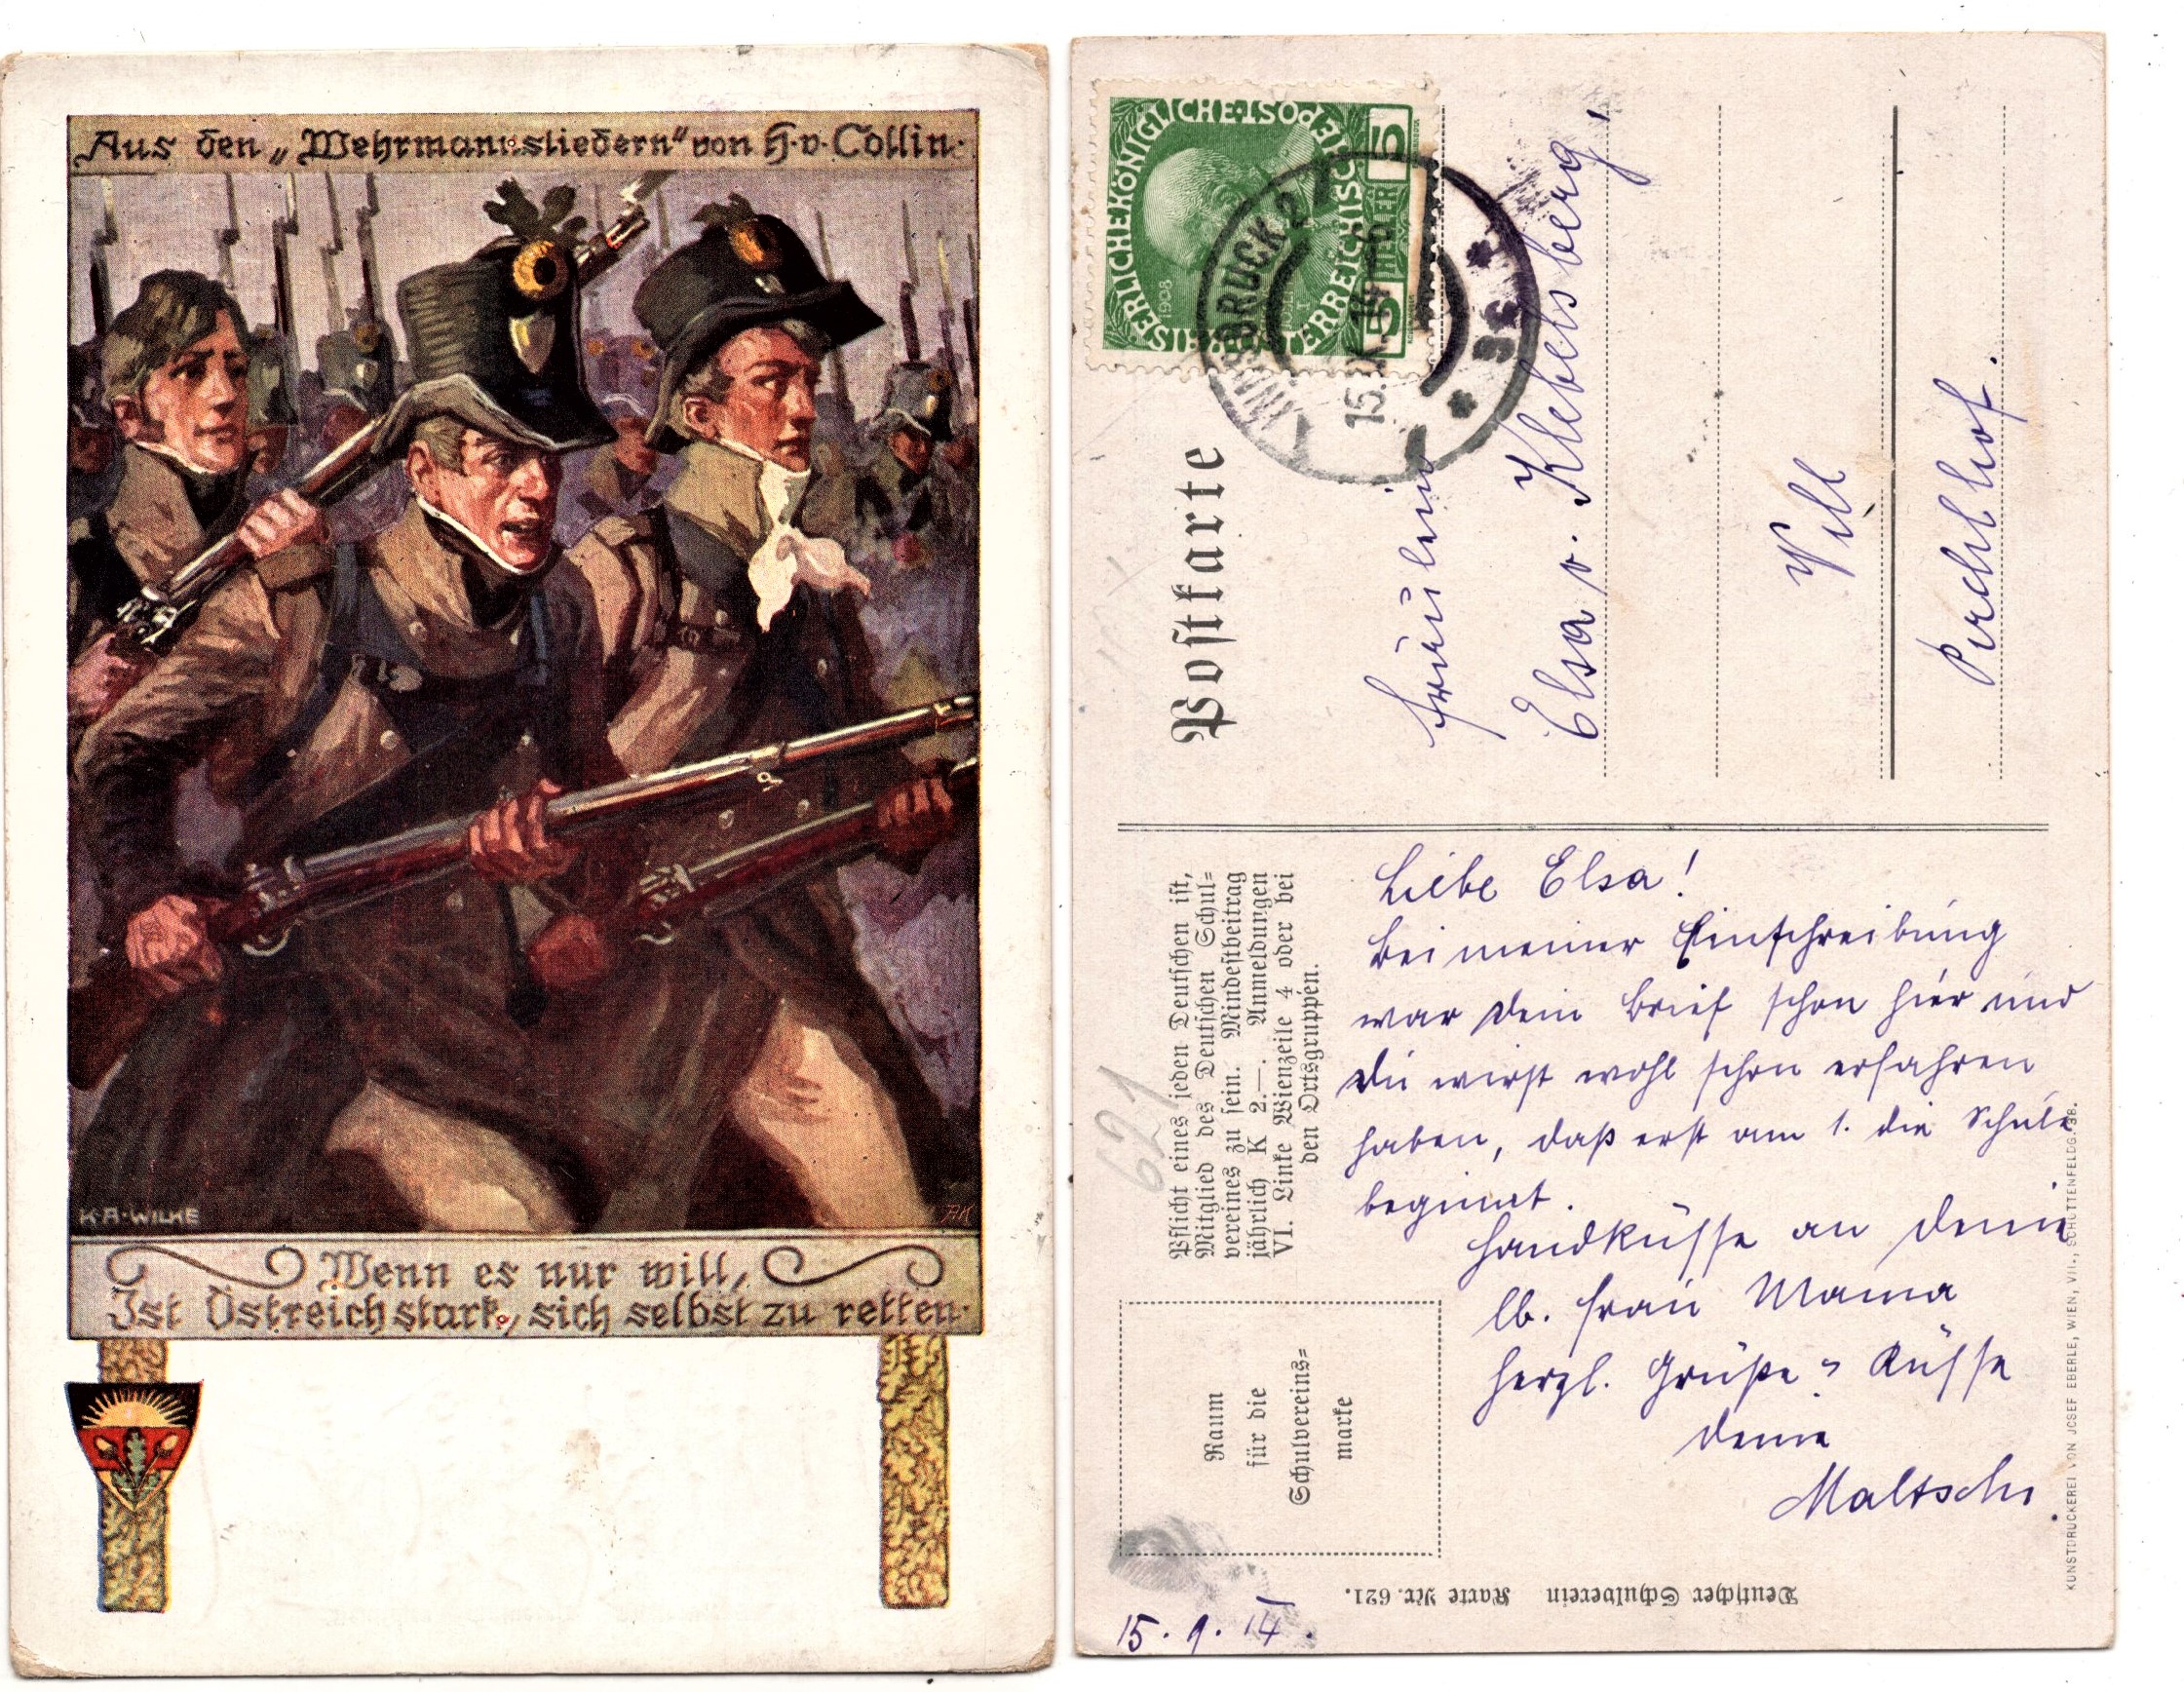 Aus den „Wehrmannsliedern" von H. v. Collin.
K·A·WILKE
AK
Wenn es nur will,
Ist Östreich stark, sich selbst zu retten.
KAISERLICHE KÖNIGLICHE ÖSTERREICHISCHE POST
5 HELLER 5
1908
INNSBRUCK 2
15. IX. 14
* 9c *
Postkarte
Fräulein
Elsa v. Klebelsberg,
Vill
Pirchlhof.
Pflicht eines jeden Deutschen ist,
Mitglied des Deutschen Schul=
vereines zu sein. Mindestbeitrag
jährlich K 2.—. Anmeldungen
VI. Linke Wienzeile 4 oder bei
den Ortsgruppen.
621
Raum
für die
Schulvereins=
marke
Liebe Elsa!
Bei meiner Einschreibung
war dein Brief schon hier und
du wirst wohl schon erfahren
haben, daß erst am 1. die Schule
beginnt.
Handküsse an deine
lb. Frau Mama
herzl. Grüße u Küsse
deine
Maltschi.
15. 9. 14.
Deutscher Schulverein Karte Nr. 621.
KUNSTDRUCKEREI VON JOSEF EBERLE, WIEN, VII., SCHOTTENFELDG. 38.